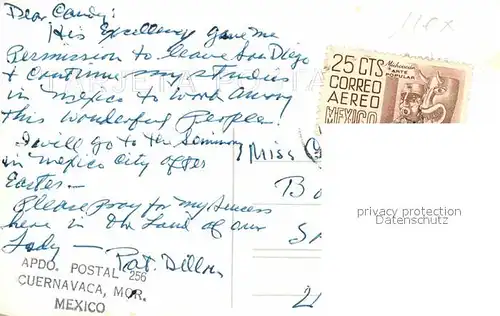 Dear Candy:
His Excellency gave me
Permission to leave San Diego
& continue my studies
in Mexico to work among
this wonderful People!
I will go to the Seminary
in Mexico City after
Easter —
Please Pray for my success
here in the Land of our
Lady — Pat. Dillon
APDO. POSTAL 256
CUERNAVACA, MOR.
MEXICO
TARJETA POSTAL
11Ex
25 CTS
CORREO
AEREO
MEXICO
Michoacán
ARTE
POPULAR
Miss C
B
S
privacy protection
Datenschutz